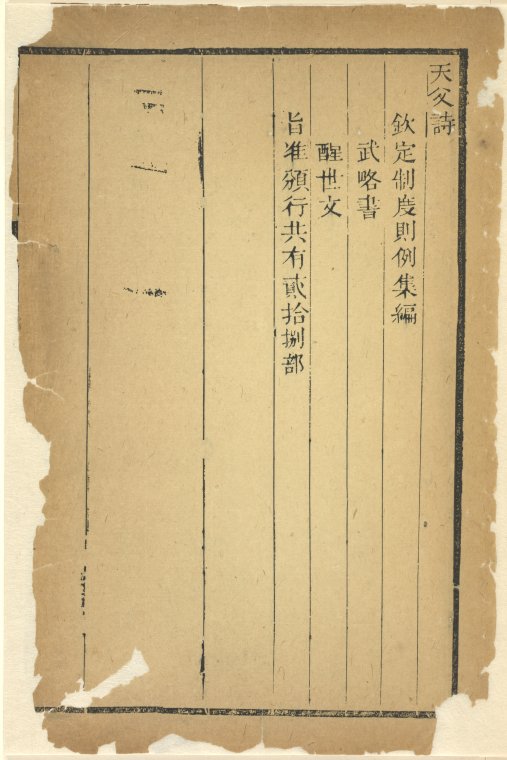 天父詩
欽定制度則例集編
武略書
醒世文
旨准頒行共有貳拾捌部